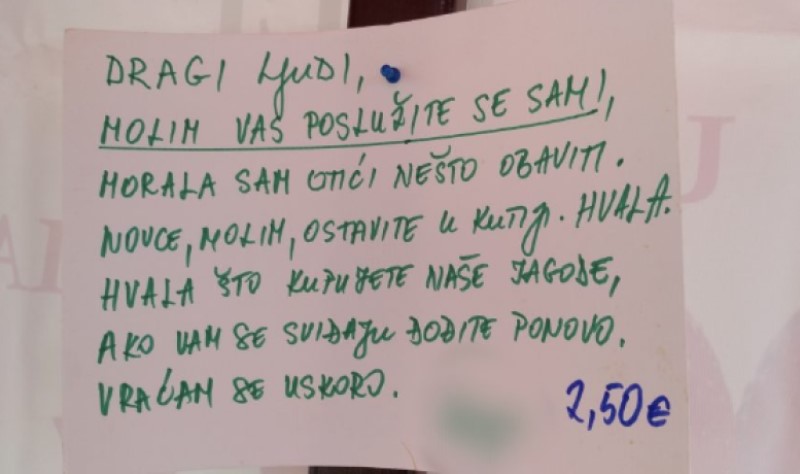 DRAGI LJUDI,
MOLIM VAS POSLUŽITE SE SAMI,
MORALA SAM OTIĆI NEŠTO OBAVITI.
NOVCE, MOLIM, OSTAVITE U KUTIJI. HVALA.
HVALA ŠTO KUPUJETE NAŠE JAGODE,
AKO VAM SE SVIĐAJU DOĐITE PONOVO.
VRAĆAM SE USKORO.
2,50€